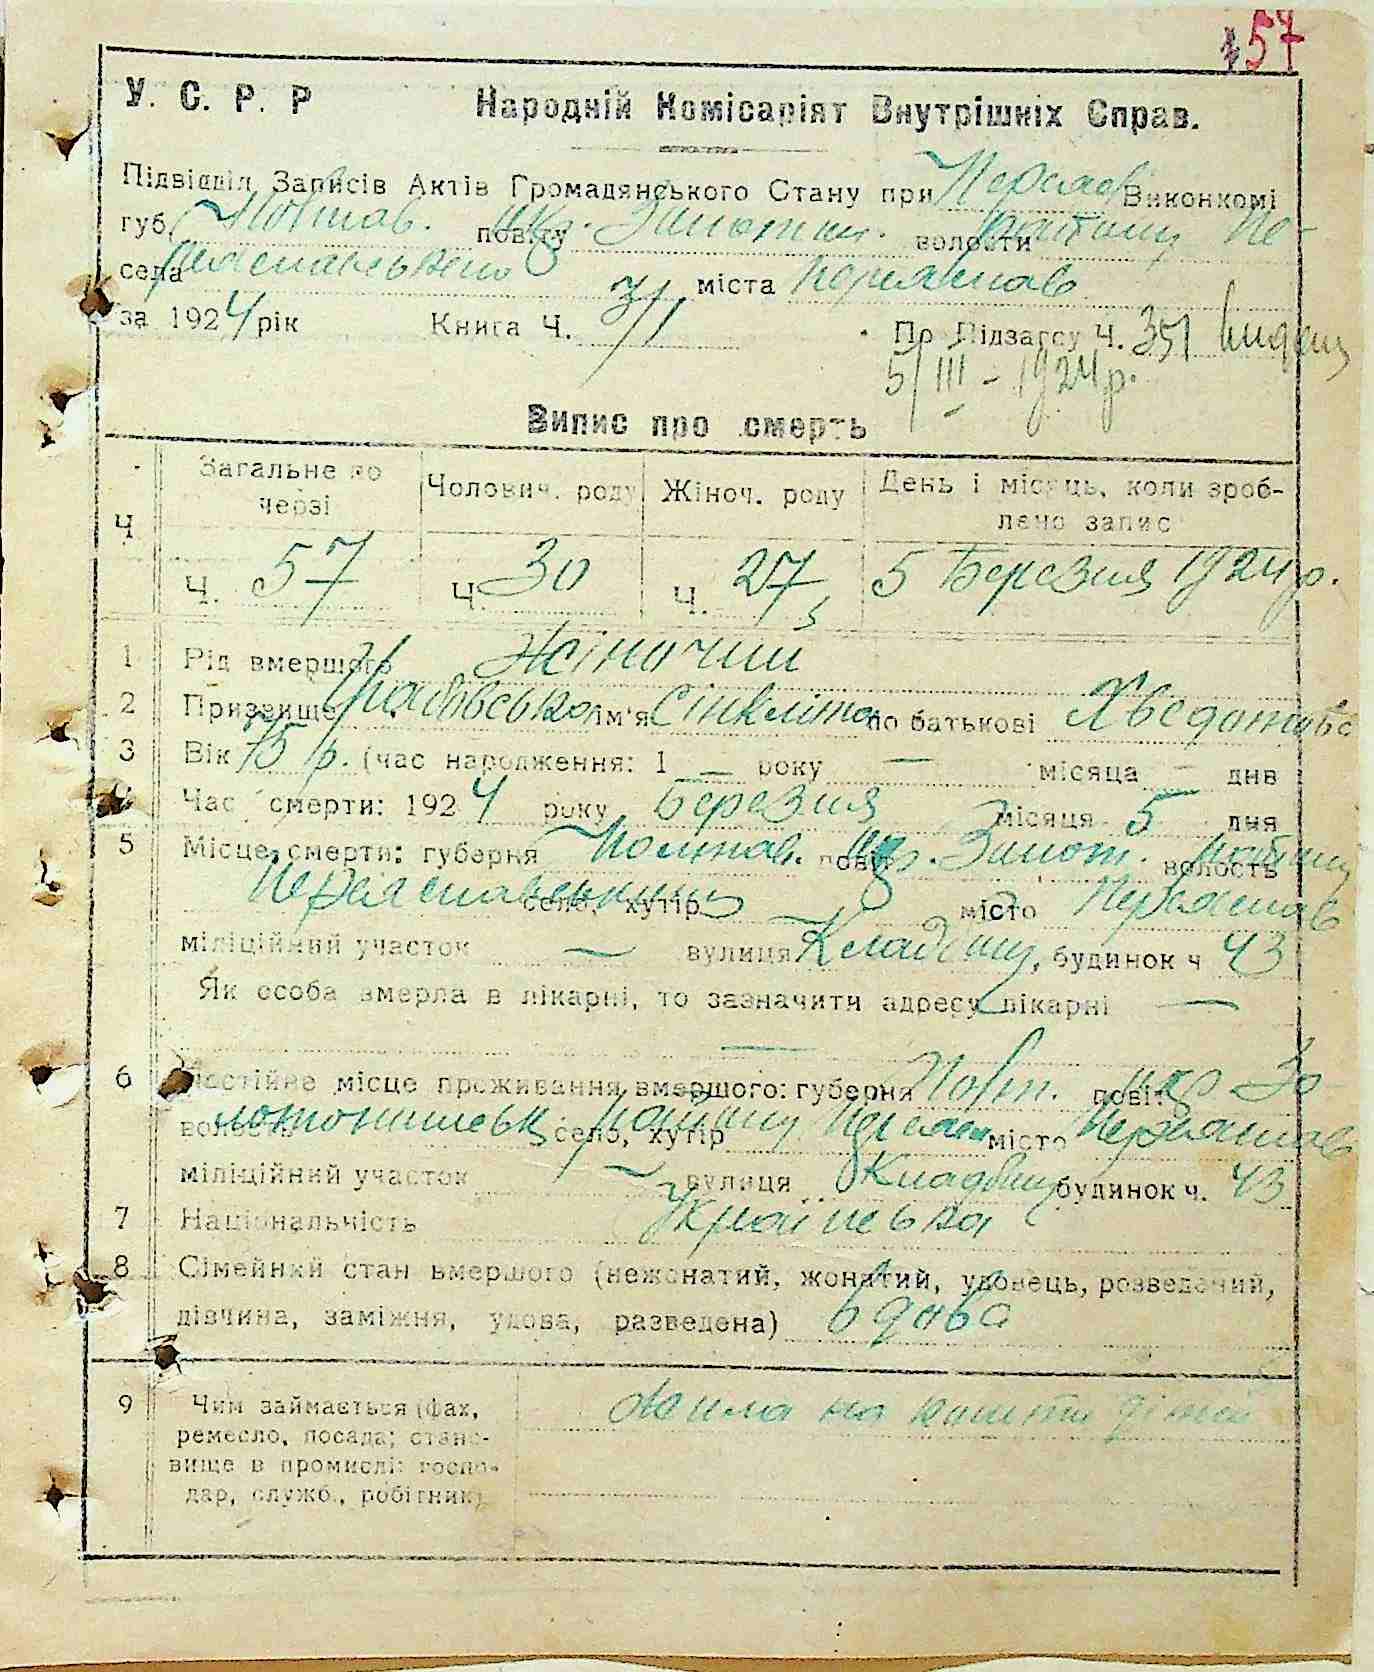 157
У. С. Р. Р Народній Комісаріят Внутрішніх Справ.
Підвідділ Записів Актів Громадянського Стану при Переясл Виконкомі
губ. Полтав. повіту окр. Золотон. волости району Пе-
села реяславського міста Переяслав
за 1924 рік Книга Ч. 3/1 По Підзагсу Ч. 351
5/III - 1924 р.
Випис про смерть
Ч Загальне по черзі Чолович. роду Жіноч. роду День і місяць, коли зроб-
лено запис
Ч. 57 Ч. 30 Ч. 27 5 Березня 1924 р.
1 Рід вмершого Жіночий
2 Призвище Грабовська ім'я Сінкліта по батькові Хведотовс
3 Вік 75 р. (час народження: 1 — року — місяца - днв
4 Час смерти: 1924 року Березня місяця 5 дня
5 Місце смерти: губерня Полтав. повіт окр. Золот. волость району
Переяславський село, хутір місто Переяслав
міліційний участок — вулиця Кладбищ, будинок ч 43
Як особа вмерла в лікарні, то зазначити адресу лікарні —
—
6 Постійне місце проживання вмершого: губерня Полт. повіт окр Зо
волость лотонишськ село, хутір району Переясл місто Переяслав
міліційний участок — вулиця Кладбищ будинок ч. 43
7 Національність Українська
8 Сімейний стан вмершого (нежонатий, жонатий, удовець, розведений,
дівчина, заміжня, удова, разведена) вдова
9 Чим займається (фах, Жила на кошти дітей
ремесло, посада; стано-
вище в промислі: госпо-
дар, служб., робітник)